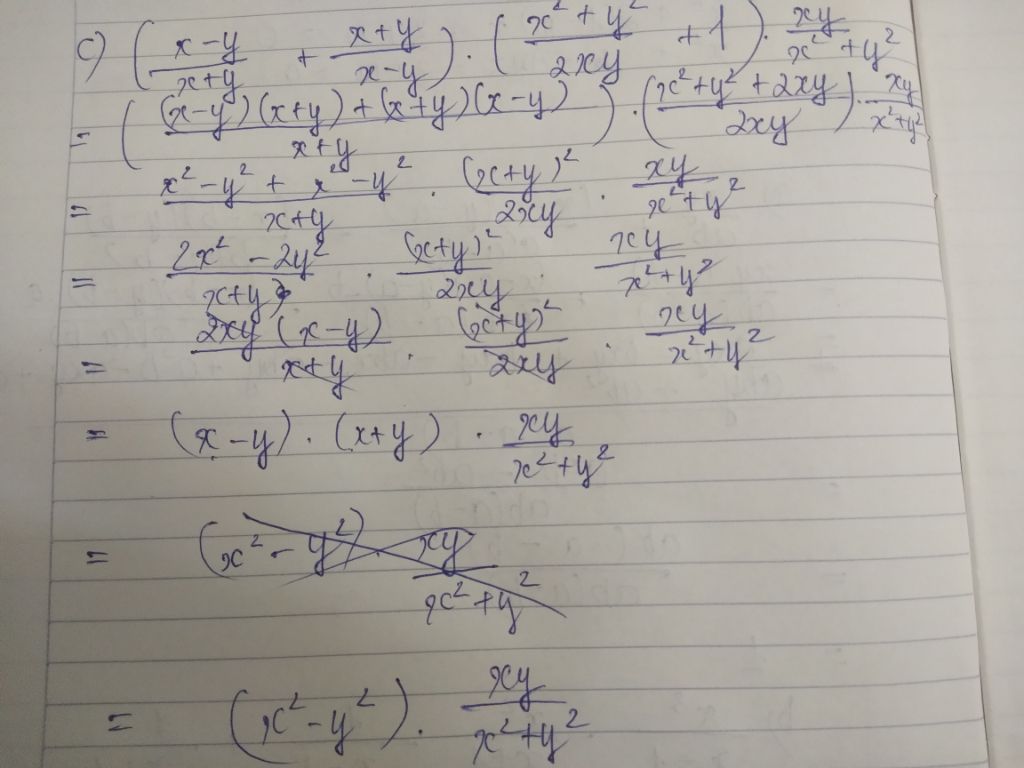 c) ( (x-y)/(x+y) + (x+y)/(x-y) ) . ( (x² + y²)/(2xy) + 1 ) . xy/(x² + y²)
= ( ((x-y)(x+y) + (x+y)(x-y))/(x+y) ) . ( (x² + y² + 2xy)/(2xy) ) . xy/(x²+y²)
= (x² - y² + x² - y²)/(x+y) . (x+y)²/(2xy) . xy/(x² + y²)
= (2x² - 2y²)/(x+y) . (x+y)²/(2xy) . xy/(x² + y²)
= (2xy (x-y))/(x+y) . (x+y)²/(2xy) . xy/(x² + y²)
= (x - y) . (x+y) . xy/(x² + y²)
= (x² - y²) xy/(x² + y²)
= (x² - y²) . xy/(x² + y²)